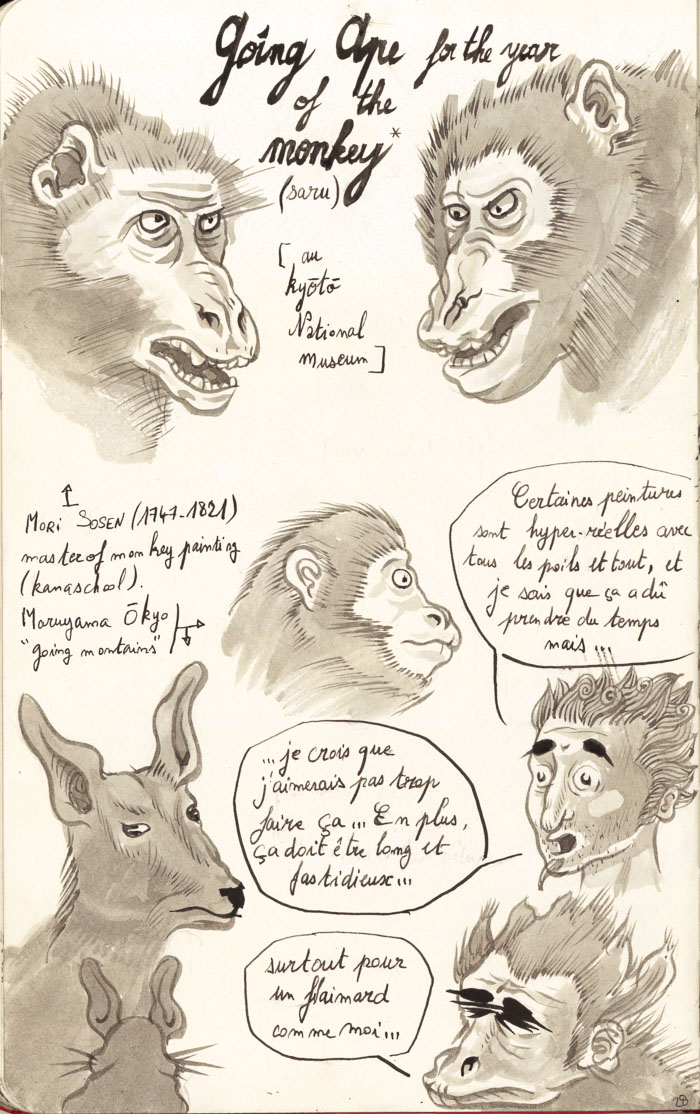 Going Ape for the year
of the
monkey*
(saru)
[ au
kyōtō
National
museum ]
Mori Sosen (1747-1821)
master of monkey painting
(kanaschool).
Maruyama Ōkyo
"going montains"
Certaines peintures
sont hyper-réelles avec
tous les poils et tout, et
je sais que ça a dû
prendre du temps
mais ...
... je crois que
j'aimerais pas trop
faire ça ... En plus,
ça doit être long et
fastidieux ...
surtout pour
un flaimard
comme moi ...
28